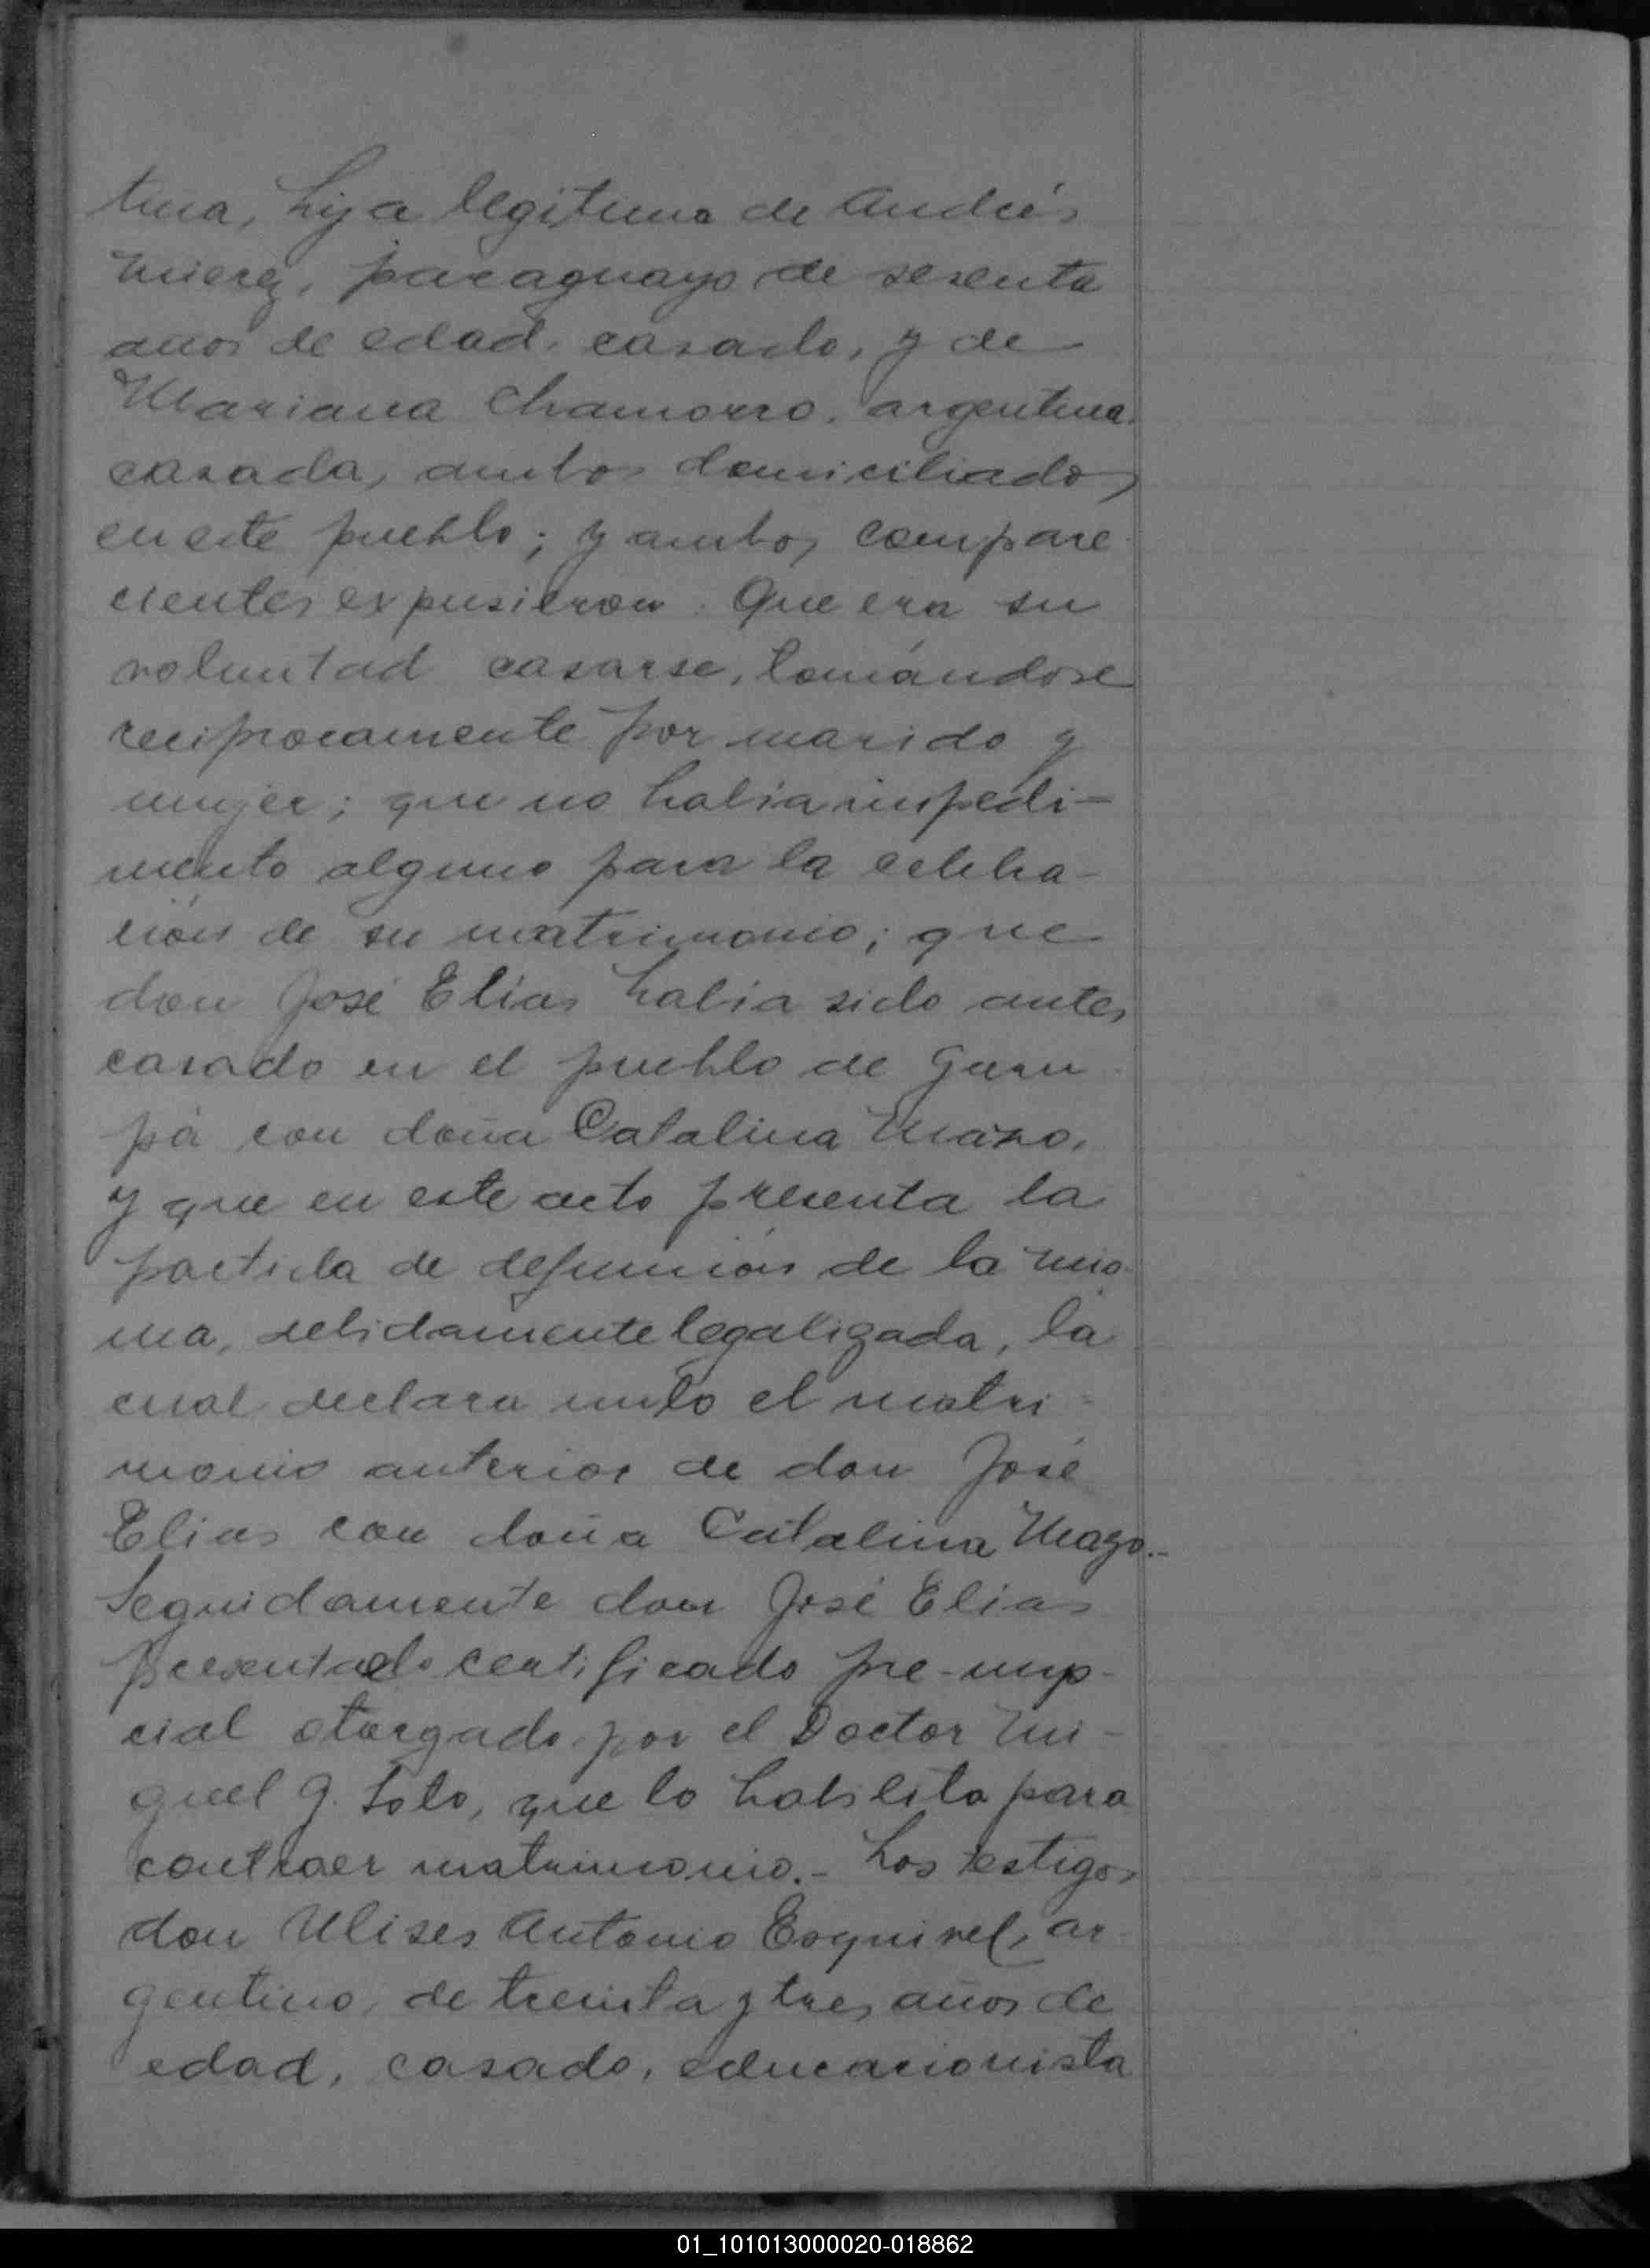 tina, hija legitima de Andrés
Mierez, paraguayo de sesenta
años de edad, casado, y de
Mariana Chamorro, argentina,
casada, ambos domiciliados
en este pueblo; y ambos compare
cientes expusieron: Que era su
voluntad casarse, tomándose
reciprocamente por marido y
mujer; que no habia impedi-
mento alguno para la celebra-
ción de su matrimonio; que
don José Elias habia sido antes
casado en el pueblo de Garu
pá con doña Catalina Mazo,
y que en este acto presenta la
partida de defunción de la mis-
ma, debidamente legalizada, la
cual declara nulo el matri-
monio anterior de don José
Elias con doña Catalina Mazo.-
Seguidamente don José Elias
presenta el certificado pre-nup-
cial otorgado por el Doctor Mi-
guel G. Soto, que lo habilita para
contraer matrimonio.- Los testigos
don Ulises Antonio Esquivel, ar
gentino, de treinta y tres años de
edad, casado, educacionista
01_101013000020-018862